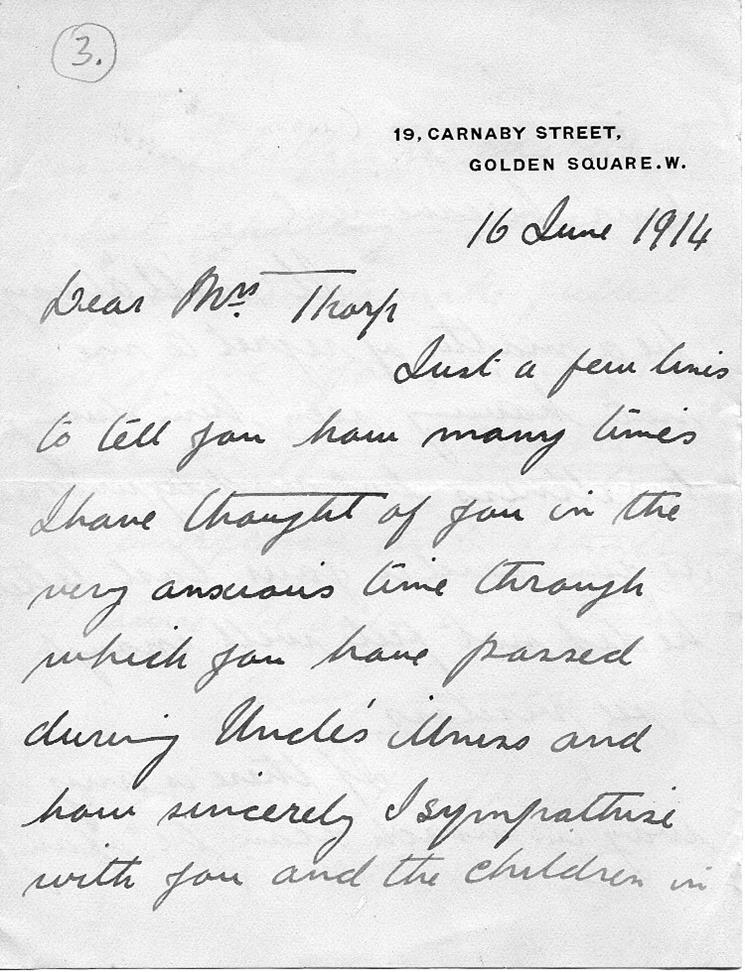 3.
19, CARNABY STREET,
GOLDEN SQUARE.W.
16 June 1914
Dear Mrs. Thorp
Just a few lines
to tell you how many times
I have thought of you in the
very anxious time through
which you have passed
during Uncle's illness and
how sincerely I sympathise
with you and the children in